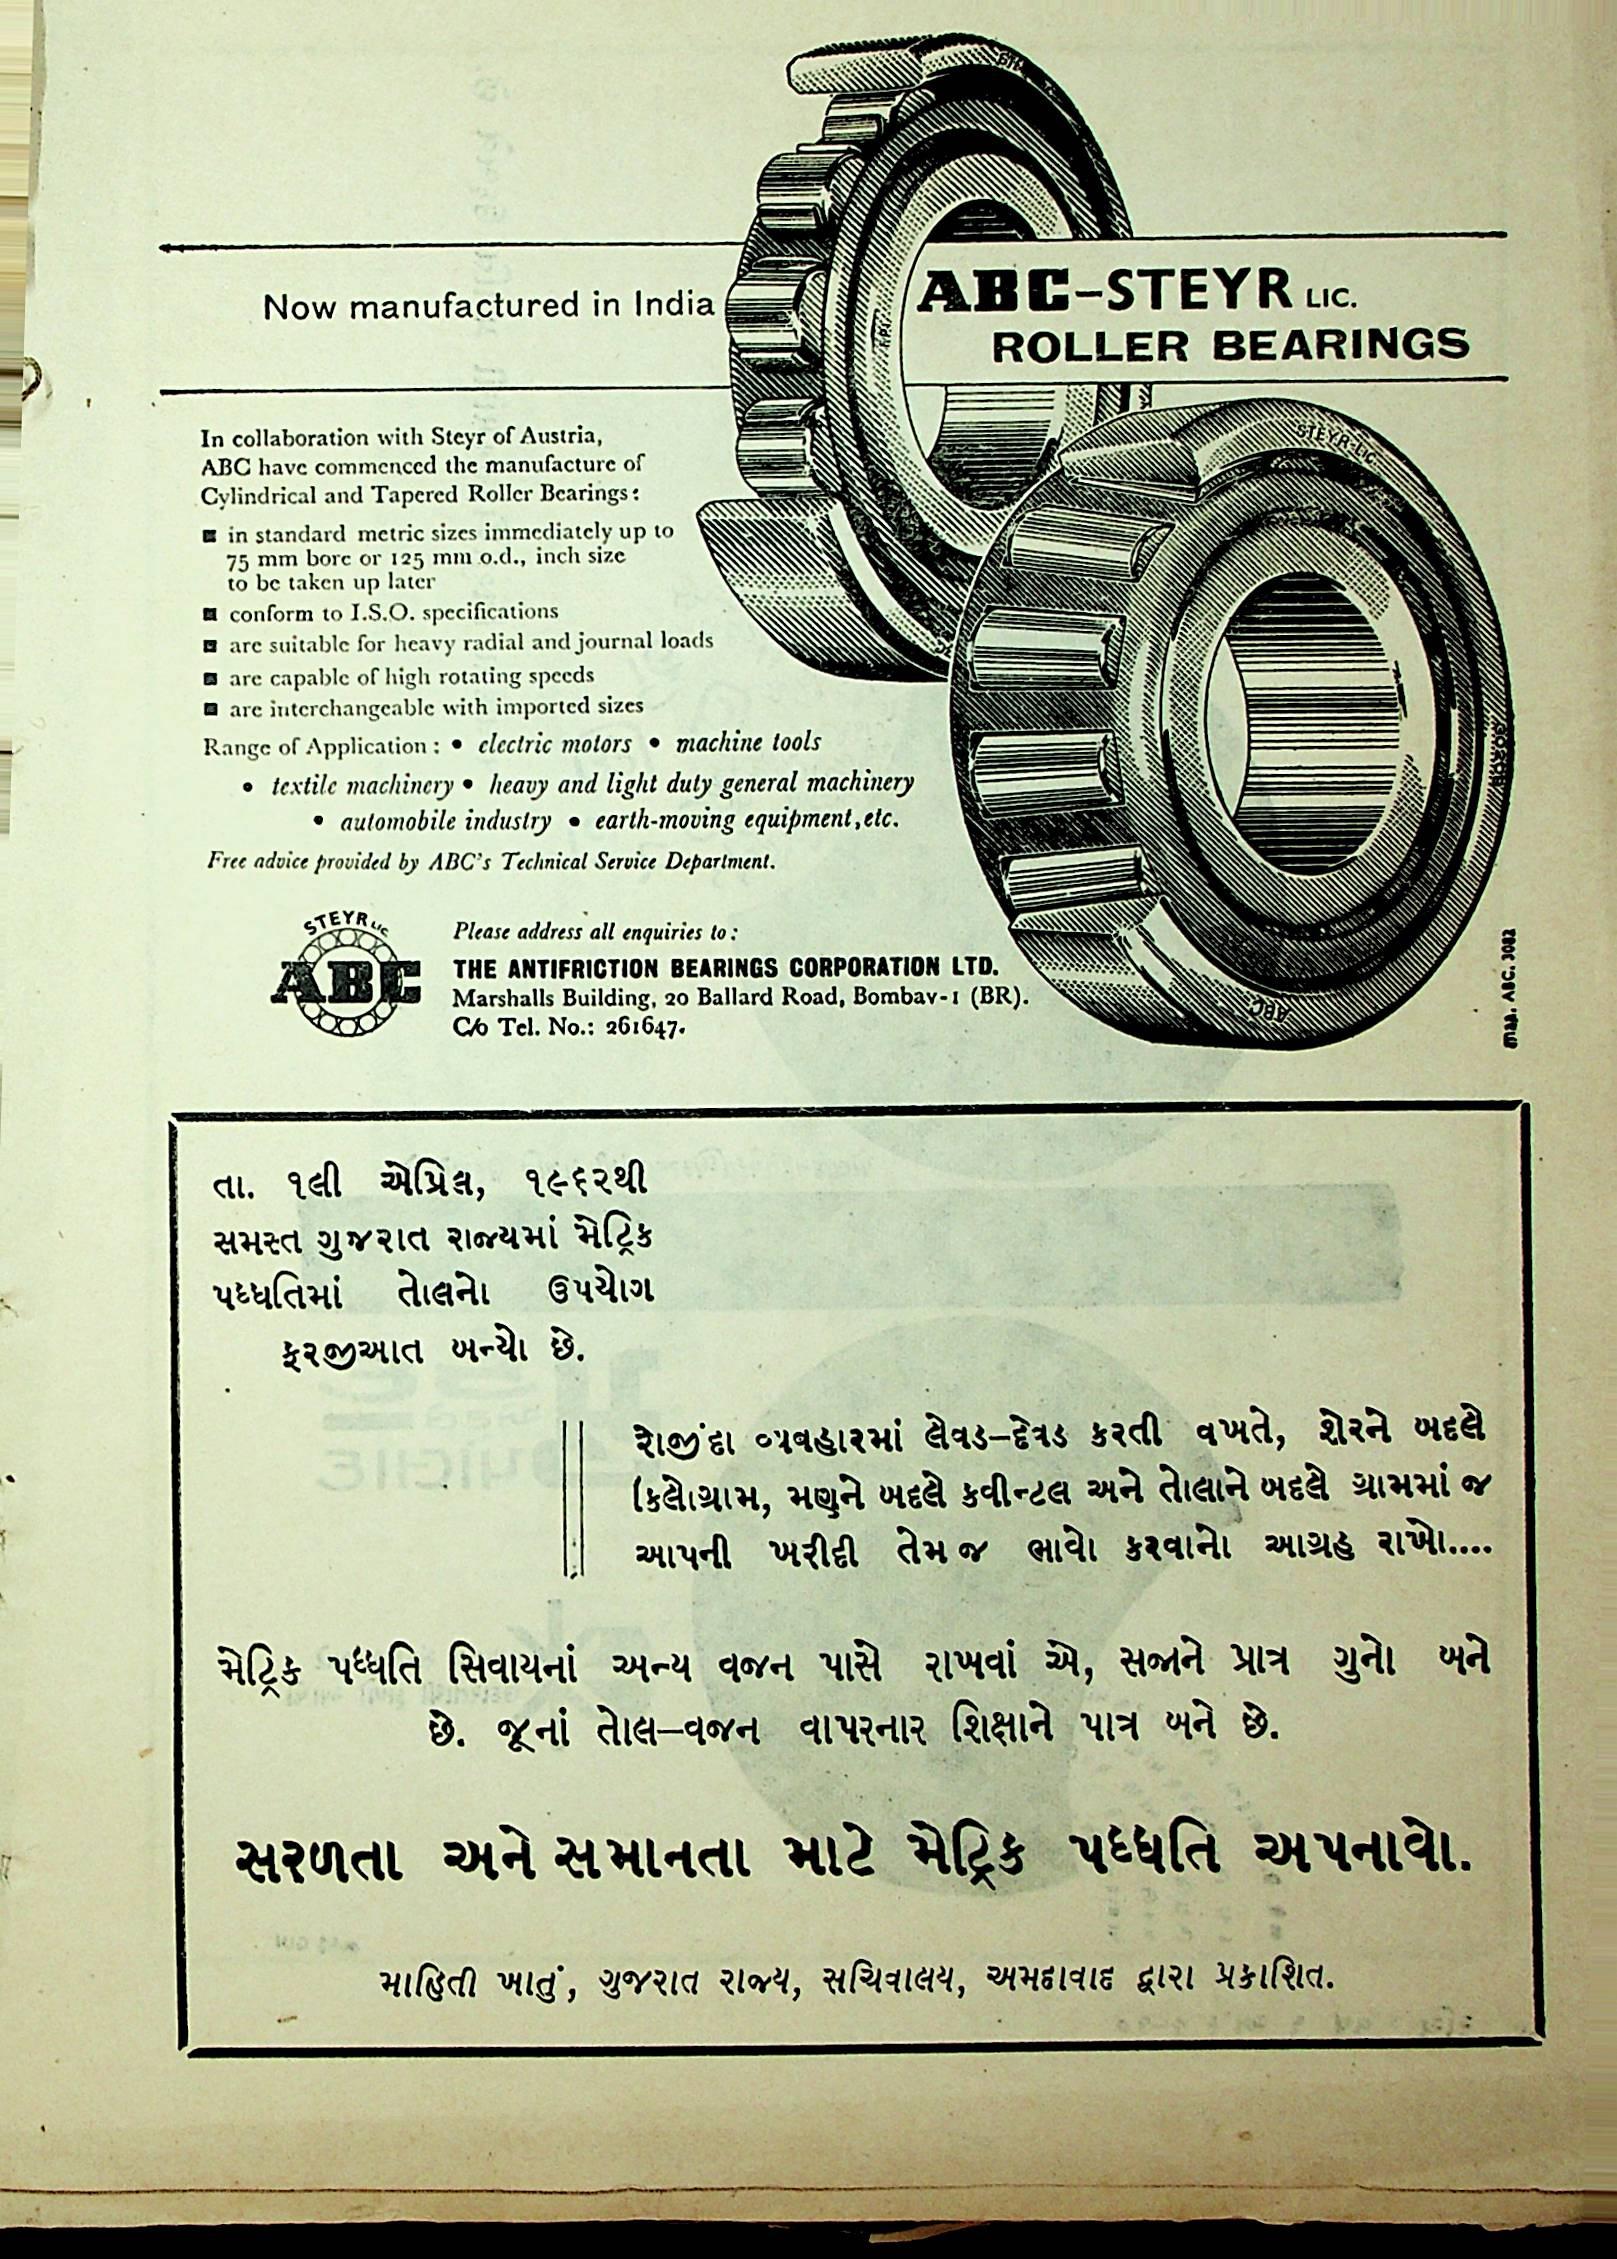 Now manufactured in India
ABC-STEYR LIC.
ROLLER BEARINGS
In collaboration with Steyr of Austria,
ABC have commenced the manufacture of
Cylindrical and Tapered Roller Bearings:
in standard metric sizes immediately up to
75 mm bore or 125 mm o.d., inch size
to be taken up later
conform to I.S.O. specifications
are suitable for heavy radial and journal loads
are capable of high rotating speeds
are interchangeable with imported sizes
Range of Application : • electric motors • machine tools
• textile machinery • heavy and light duty general machinery
• automobile industry • earth-moving equipment, etc.
Free advice provided by ABC's Technical Service Department.
STEYR LIC
ABC
Please address all enquiries to :
THE ANTIFRICTION BEARINGS CORPORATION LTD.
Marshalls Building, 20 Ballard Road, Bombay-1 (BR).
C/o Tel. No.: 261647.
STEYR-LIC
ABC
ABC. 3082
તા. ૧લી એપ્રિલ, ૧૯૬૨થી
સમસ્ત ગુજરાત રાજ્યમાં મેટ્રિક
પધ્ધતિમાં તોલનો ઉપયોગ
ફરજીઆત બન્યો છે.
રોજીંદા વ્યવહારમાં લેવડ–દેવડ કરતી વખતે, શેરને બદલે
કિલોગ્રામ, મણને બદલે કવીન્ટલ અને તોલાને બદલે ગ્રામમાં જ
આપની ખરીદી તેમ જ ભાવો કરવાનો આગ્રહ રાખો....
મેટ્રિક પધ્ધતિ સિવાયનાં અન્ય વજન પાસે રાખવાં એ, સજાને પ્રાત્ર ગુનો બને
છે. જૂનાં તોલ–વજન વાપરનાર શિક્ષાને પાત્ર બને છે.
સરળતા અને સમાનતા માટે મેટ્રિક પધ્ધતિ અપનાવો.
માહિતી ખાતું, ગુજરાત રાજ્ય, સચિવાલય, અમદાવાદ દ્વારા પ્રકાશિત.